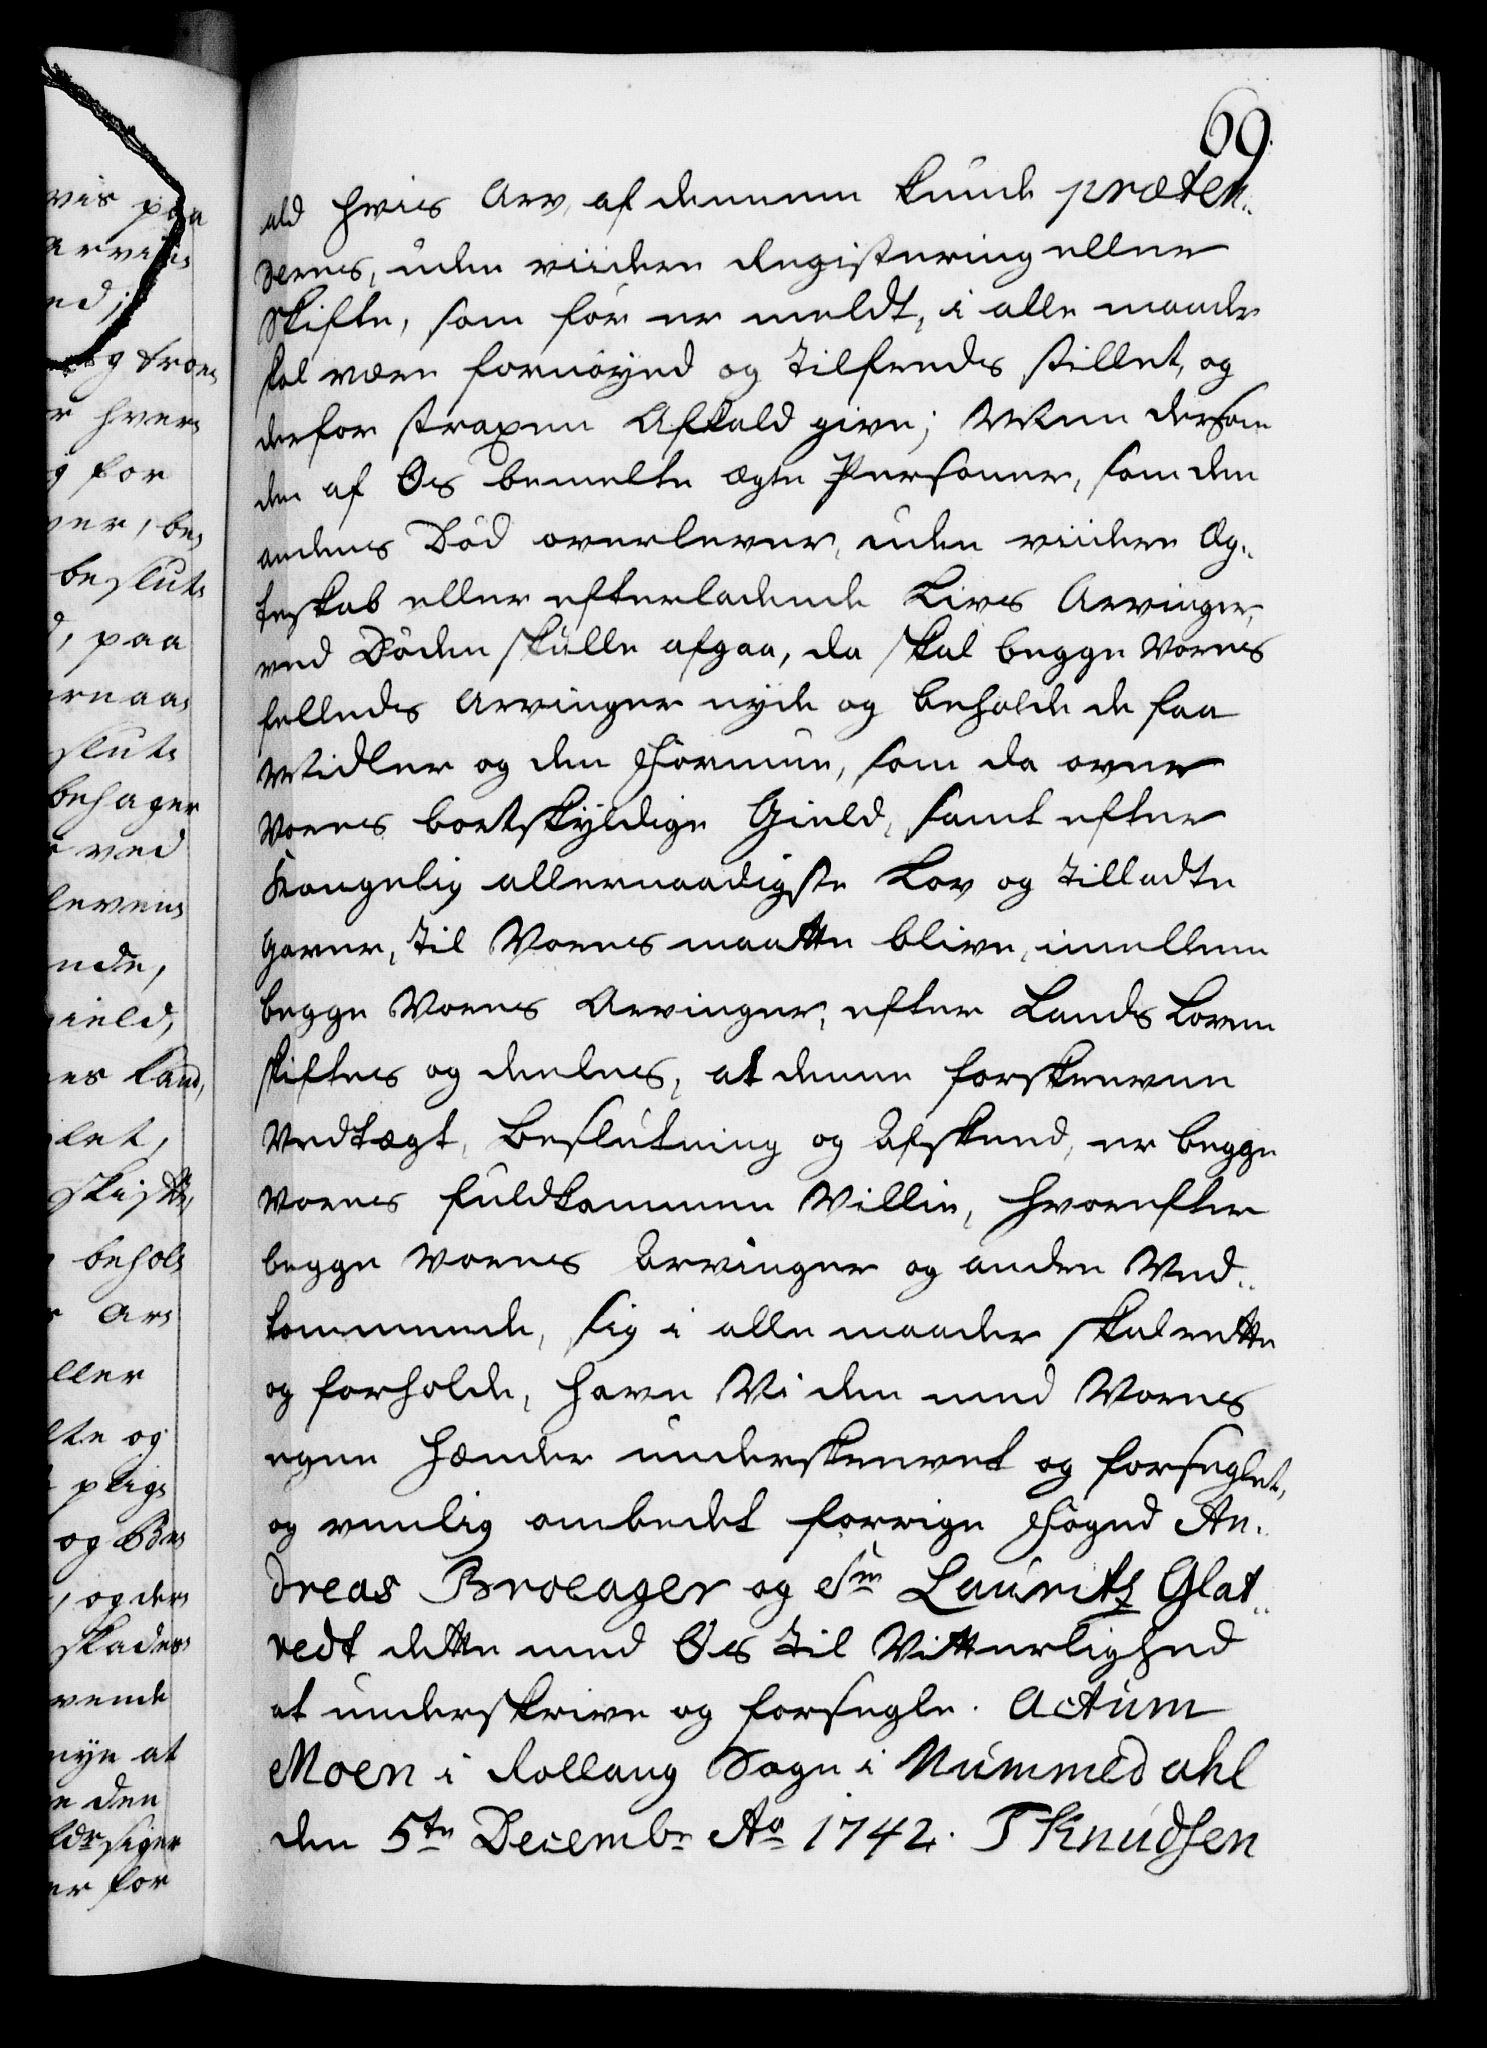 69.
ald hvis Arv, af dennem kunde præten-
deres, uden viidere Registering eller
Skifte, som før er meldt, i alle maader
skal være fornøyed og tilfreds stillet, og
derfor straxen Afkald give; Men dersom
den af Os bemelte ægte Personer, som den
andens Død overlever, uden viidere Æg-
teskab eller efterladende Livs Arvinger,
ved Døden skulle afgaa, da skal begge Vores
felleds Arvinger nyde og beholde de faa
Midler og den Formue, som da over
Vores bortskyldige Gield, samt efter
Kongelig allernaadigste Lov og tilladte
Gaver, til Vores maatte blive, imellem
begge Vores Arvinger, efter Lands Loven
skiftes og deeles, at denne forskrevne
Vedtægt, Beslutning og Afskeed, er begge
Vores fuldkommen Villie, hvorefter
begge Vores Arvinger og andre Ved-
kommende, sig i alle maader skal rette
og forholde, have Vi den med Vores
egne Hænder underskrevet og forseglet,
og venlig ombedet forrige Foged An-
dreas Broeager og Sr Lauritz Glat-
vedt dette med Os til Vitterlighed
at underskrive og forsegle. Actum
Moen i Rollaug Sogn i Nummedahl
den 5te Decembr Ao 1742. T Knudsen